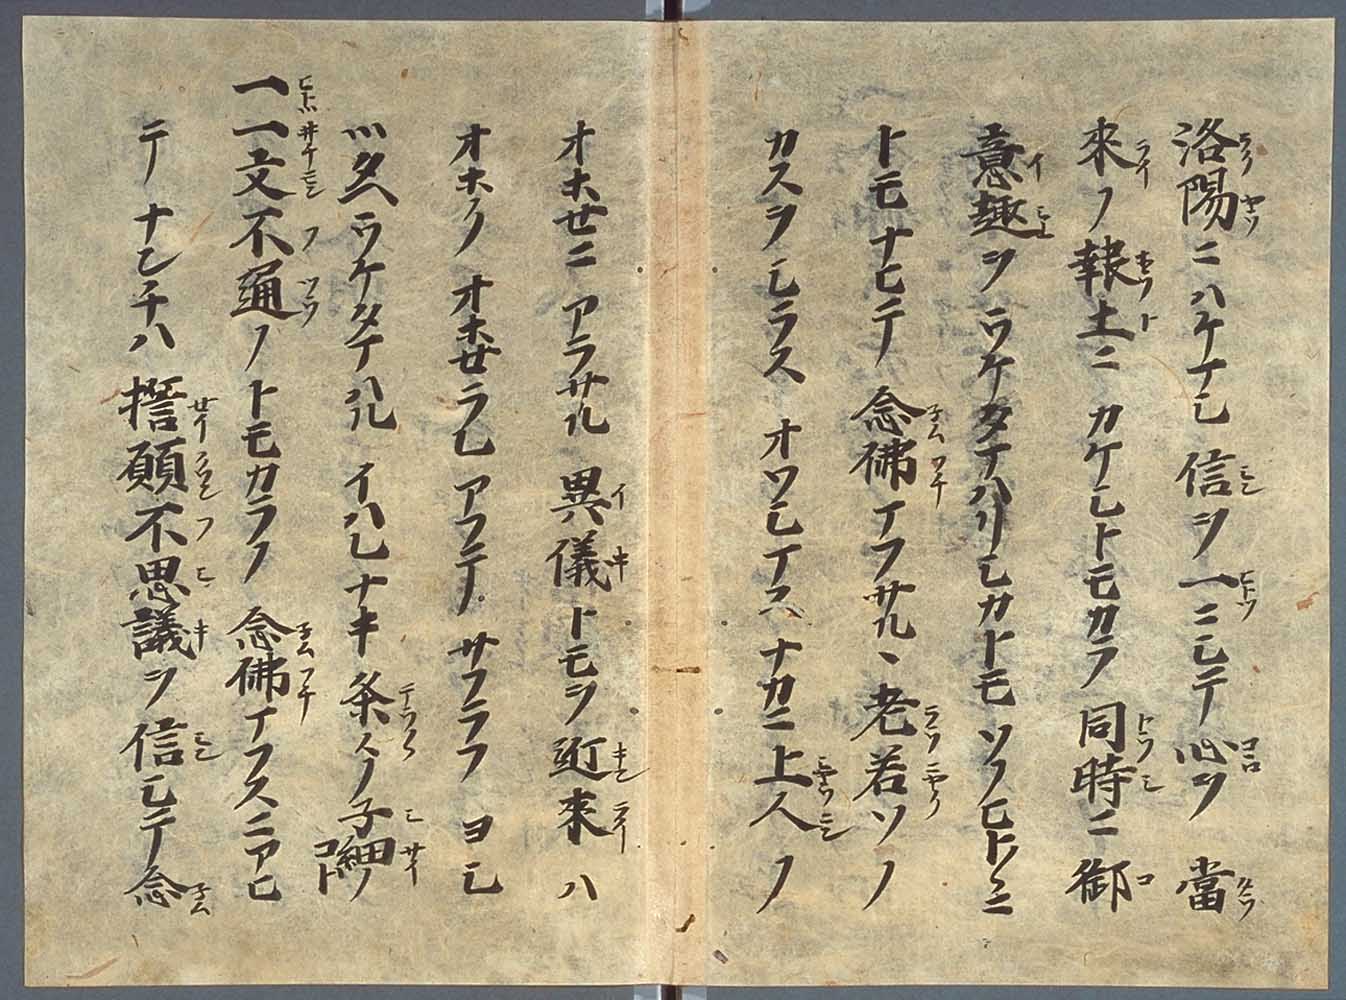 洛陽ニハケマシ信ヲ一ニシテ心ヲ當
來ノ報土ニカケシトモカラフ同時ニ御
意趣ヲウケタマハリシカトモソノヒト〱ニ
トモナヒテ念佛マフサルヽ老若ソノ
カスヲシラスオハシマスナカニ上人ノ
オホセニアラサル異儀トモヲ近來ハ
オホクオホセラレアフテサフラフヨシ
ツタヘウケタマハルイハレナキ条々ノ子細ノコト
一一文不通ノトモカラノ念佛マフスニアヒ
テナンチハ誓願不思議ヲ信シテ念